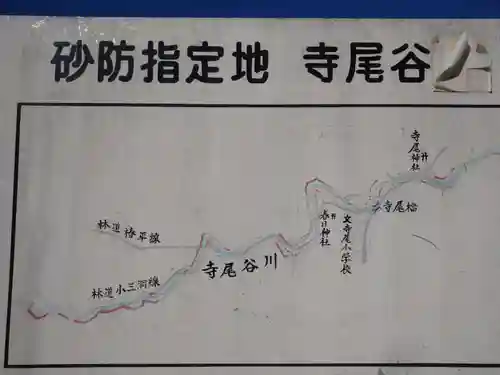 砂防指定地 寺尾谷
寺尾神社
寺尾橋
春日神社
文寺尾小学校
林道椿平線
寺尾谷川
林道小三洞線